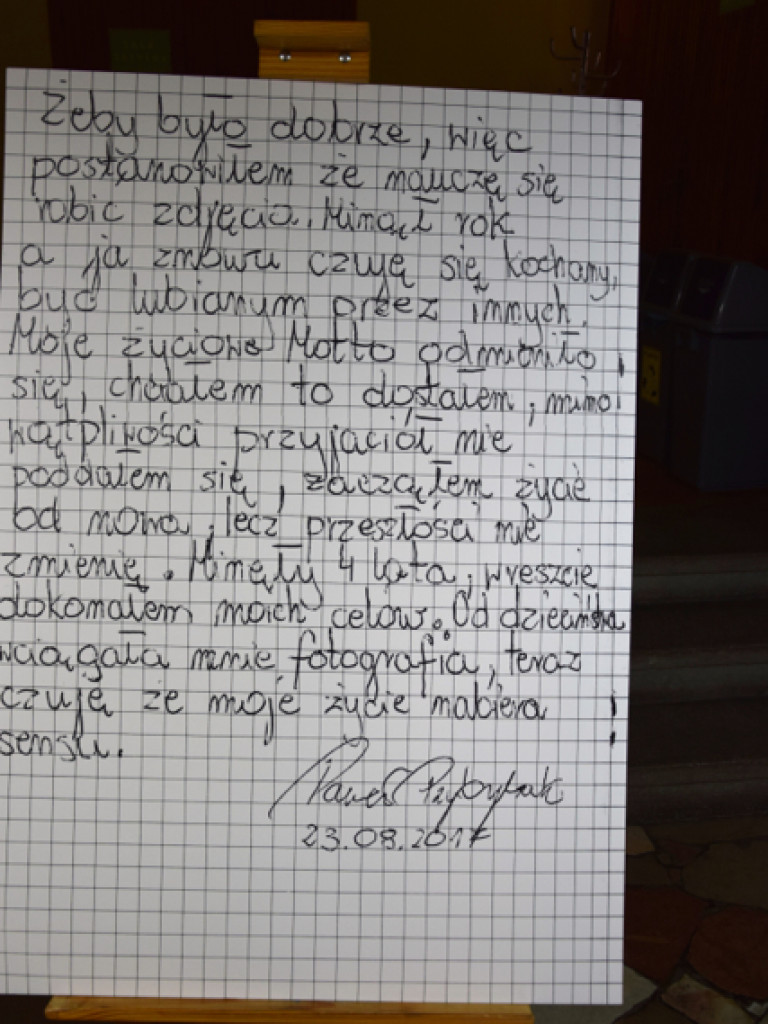 Żeby było dobrze, więc
postanowiłem że nauczę się
robić zdjęcia. Minął rok
a ja znowu czuję się kochany,
być lubianym przez innych.
Moje życiowe Motto odmieniło
się, chciałem to dostałem, mimo
wątpliwości przyjaciół nie
poddałem się, zacząłem życie
od nowa, lecz przeszłości nie
zmienię. Minęły 4 lata, wreszcie
dokonałem moich celów. Od dzieciństwa
wciągała mnie fotografia, teraz
czuję że moje życie nabiera
sensu.
Paweł Przybylak
23.08.2017